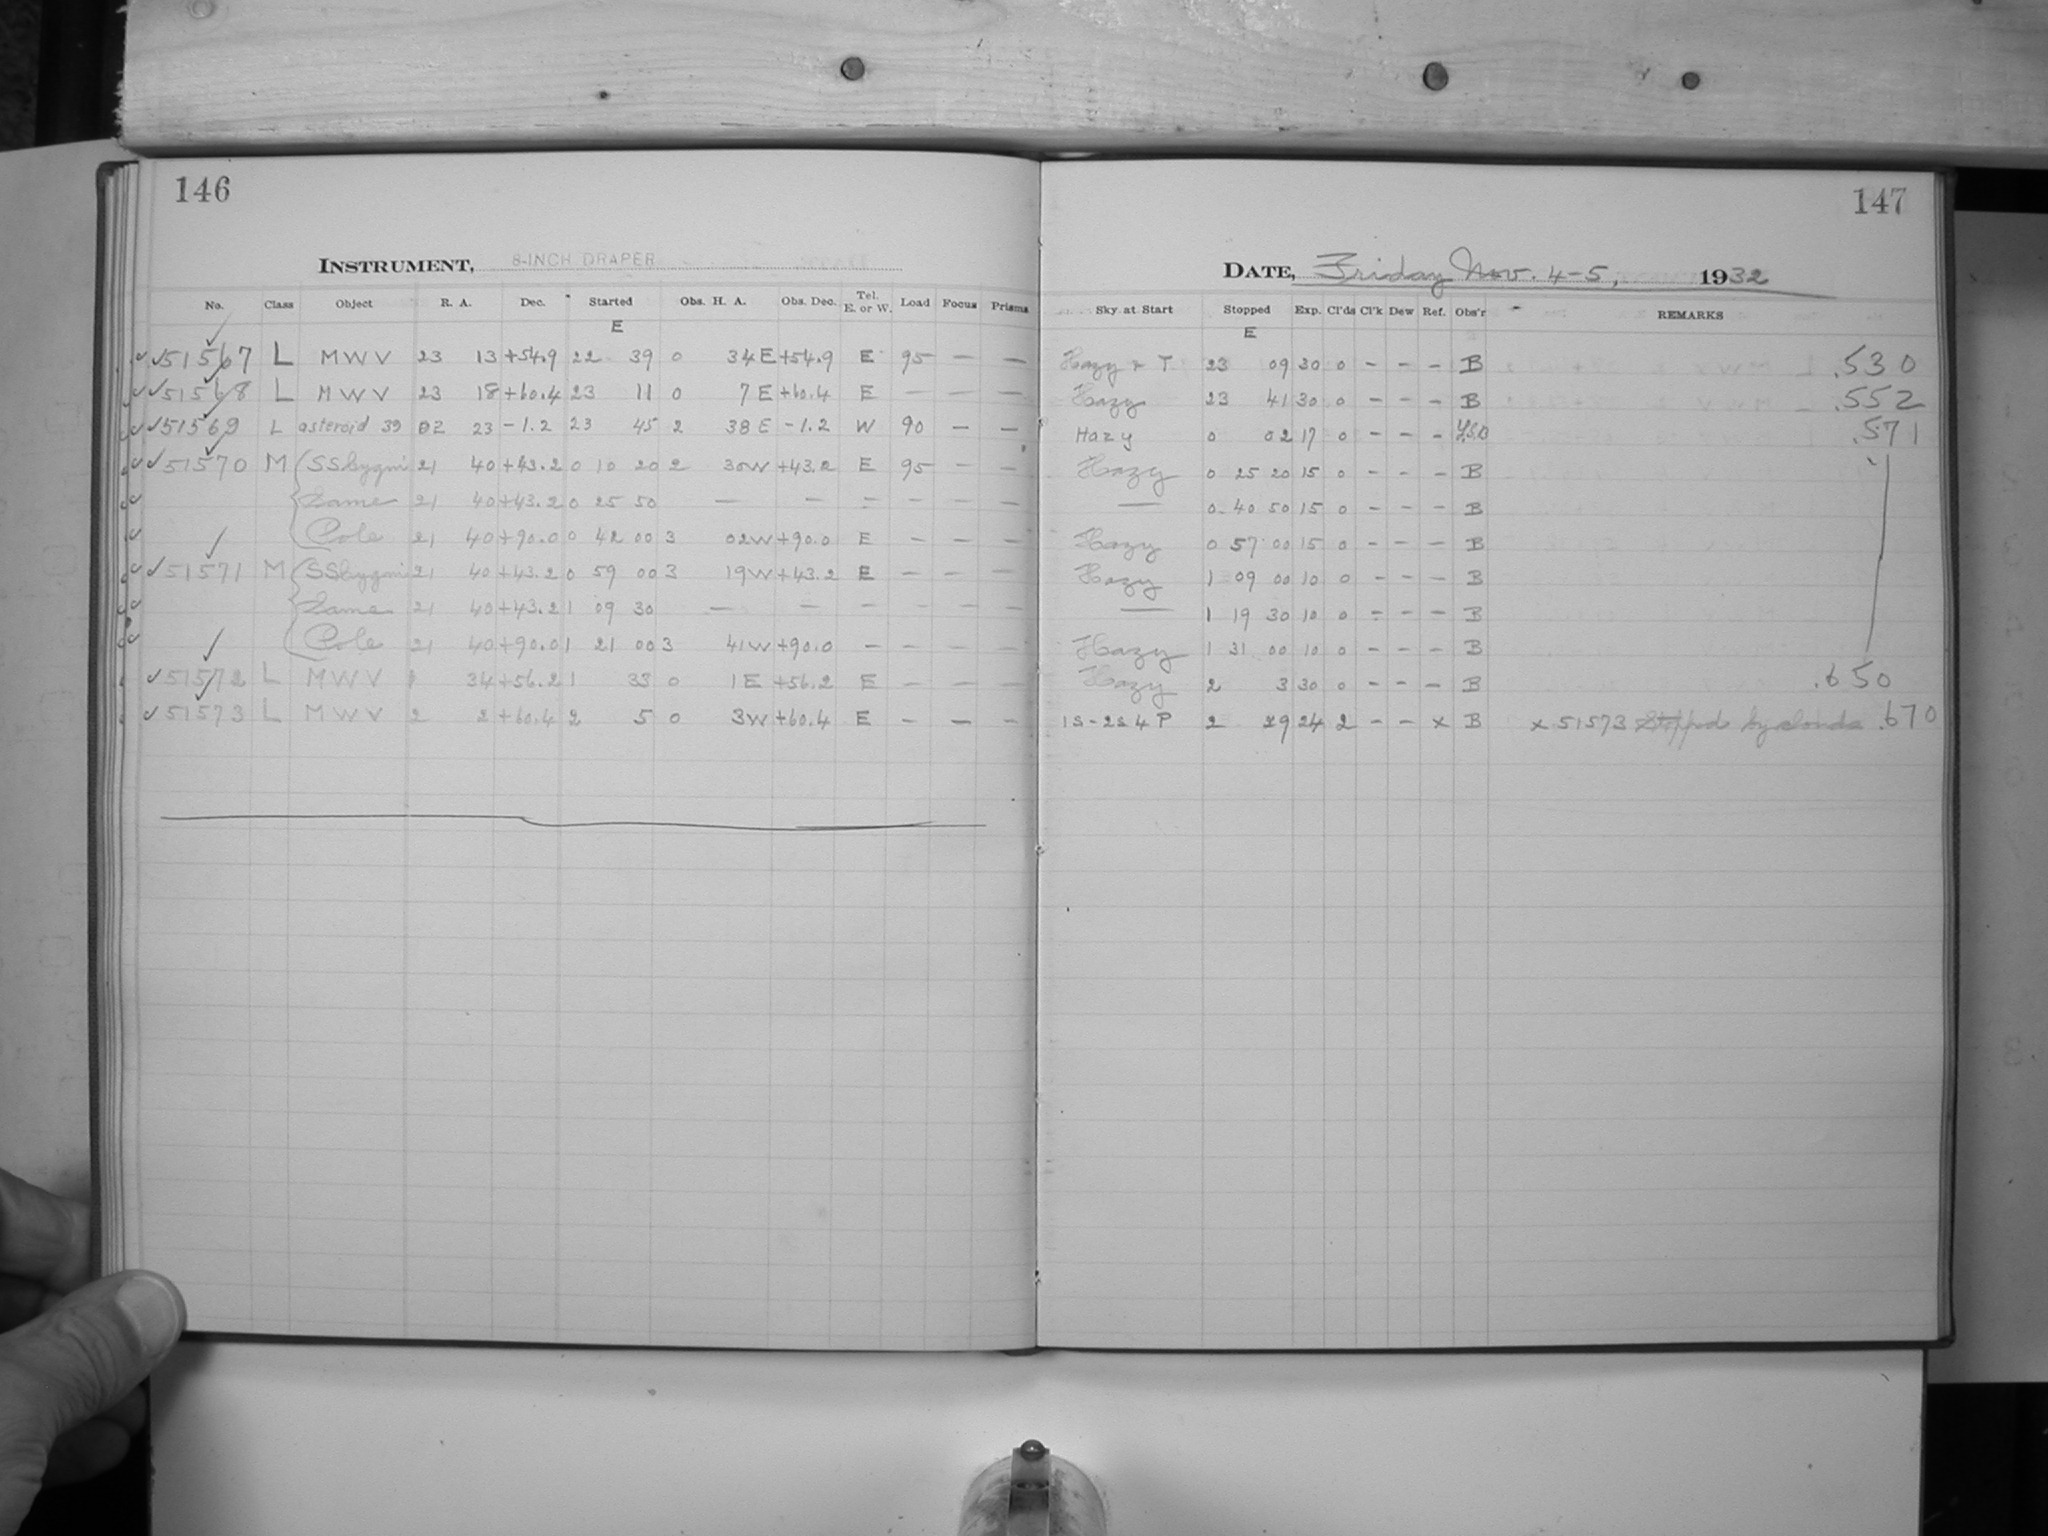 146
INSTRUMENT, 8-INCH DRAPER
No. Class Object R. A. Dec. Started Obs. H. A. Obs. Dec. Tel. E. or W. Load Focus Prisms
E
51567 L M W V 23 13 +54.9 22 39 0 34 E +54.9 E 95 — —
51568 L M W V 23 18 +60.4 23 11 0 7 E +60.4 E — — —
51569 L asteroid 39 02 23 -1.2 23 45 2 38 E -1.2 W 90 — —
51570 M SS Cygni 21 40 +43.2 0 10 20 2 30 W +43.2 E 95 — —
Same 21 40 +43.2 0 25 50 — — — — — —
Pole 21 40 +90.0 0 42 00 3 02 W +90.0 E — — —
51571 M SS Cygni 21 40 +43.2 0 59 00 3 19 W +43.2 E — — —
Same 21 40 +43.2 1 09 30 — — — — — —
Pole 21 40 +90.0 1 21 00 3 41 W +90.0 — — — —
51572 L M W V 1 34 +56.2 1 33 0 1 E +56.2 E — — —
51573 L M W V 2 2 +60.4 2 5 0 3 W +60.4 E — — —
147
DATE, Friday Nov. 4-5, 1932
Sky at Start Stopped Exp. Cl'ds Cl'k Dew Ref. Obs'r REMARKS
E
Hazy & T 23 09 30 0 - - - B .530
Hazy 23 41 30 0 - - - B .552
Hazy 0 02 17 0 - - - .571
Hazy 0 25 20 15 0 - - - B
— 0 40 50 15 0 - - - B
Hazy 0 57 00 15 0 - - - B
Hazy 1 09 00 10 0 - - - B
— 1 19 30 10 0 - - - B
Hazy 1 31 00 10 0 - - - B
Hazy 2 3 30 0 - - - B .650
1S-2S 4 P 2 29 24 2 - - x B x 51573 Stopped by clouds .670